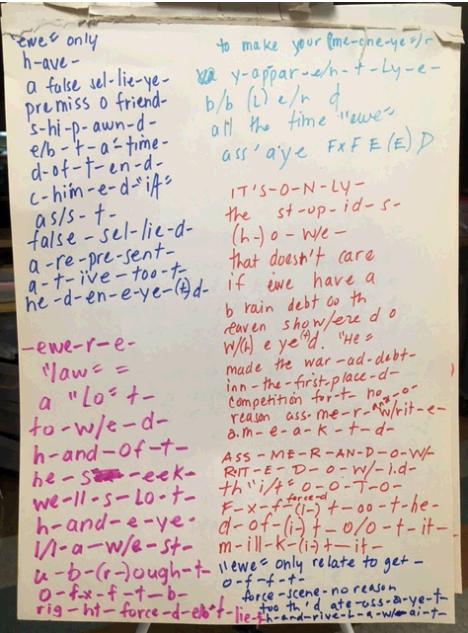 "ewe" only
h-ave-
a false sel-lie-ye-
premiss o friend-
s-hi-p-awn-d-
e/b-t-a-time-
d-of-t-en-d-
c-him-e-d-"if"
as/s-t-
false-sel-lie-d-
a-re-pre-sent-
a-t-ive-too-t-
he-d-en-e-ye-(t)d-
-ewe-r-e-
"law" =
a "Lo" t-
to-w/e-d-
h-and-of-t-
he-s eek-
we-ll-s-Lo-t-
h-and-e-ye-
l/l-a-w/e-st-
a-b-(r-)ough-t-
o-fx-f-t-b-
rig-ht-force-d-eb't-lie-
to make your (me-one-ye=)r-
y-appar-e/n-t-Ly-e-
b/b (L) e/n d
all the time "ewe"
ass'aye FxFE(E)D
IT'S-O-N-LY-
the st-up-id-s-
(h-)o-w/e-
that doesn't care
if ewe have a
b rain debt oo th
eaven show/ere d o
w/(h) e ye(t)d. "He"
made the war-ad-debt-
inn-the-first-place-d-
competition for-t-no-o-
reason ass-me-r-and w/rit-e-
a.m-e-a-k-t-d-
ASS-ME-R-AN-D-O-W/-
RIT-E-D-O-W/-I.d-
th"i/t" O-O-T-O-
F-x-f-forced(i-)t-oo-t-he-
d-of-(i-)t-o/o-t-it-
m-ill-k-(i-)t-it-
"ewe" only relate to get-
o-f-f-t-
force-scene-no reason
two th'd ate-ass-a-ye-t-
h-and-rive-L-a-w/e-ai-t-